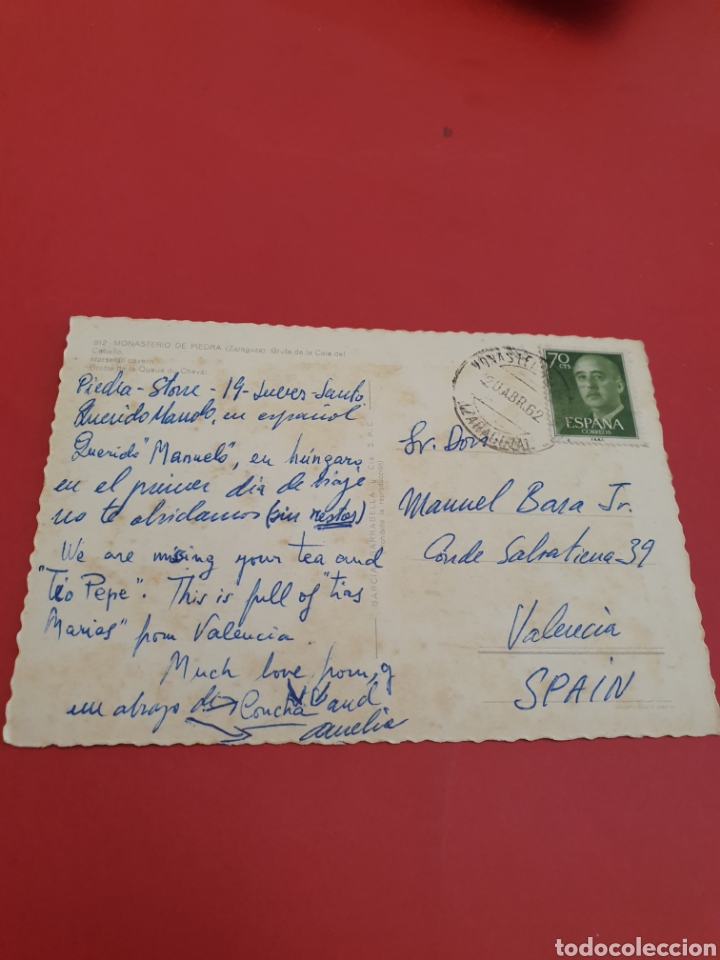 912 MONASTERIO DE PIEDRA (Zaragoza) Gruta de la Cola del
Caballo.
Grotte de la Queue du Cheval
Piedra - Stone - 19 - Jueves-Santo
Querido Manolo, en español
Querido "Manueló", en húngaro
en el primer dia de viaje
no te olvidamos (sin restos)
We are missing your tea and
"Tio Pepe". This is full of "tias
Marias" from Valencia.
Much love from, y
un abrazo de Concha and
Amelia
MONASTE
20 ABR. 62
(ZARAGOZA)
70
CTS
ESPAÑA
CORREOS
Sr. Don
Manuel Bara Jr.
Conde Salvatierra 39
Valencia
SPAIN
todocoleccion
todocoleccion.net